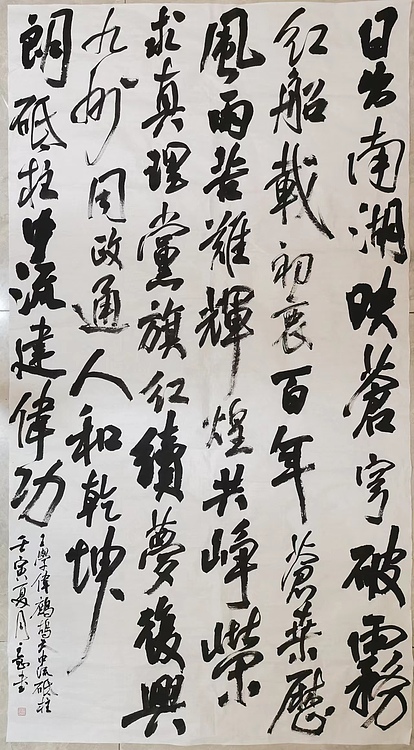 日出南湖映蒼穹破霧
紅船載初衷百年蒼桑歷
風雨苦難輝煌共崢嶸
求真理黨旗紅續夢復興
九州同政通人和乾坤
朗砥柱中流建偉功
王學偉鷓鴣天中流砥柱
壬寅夏月書